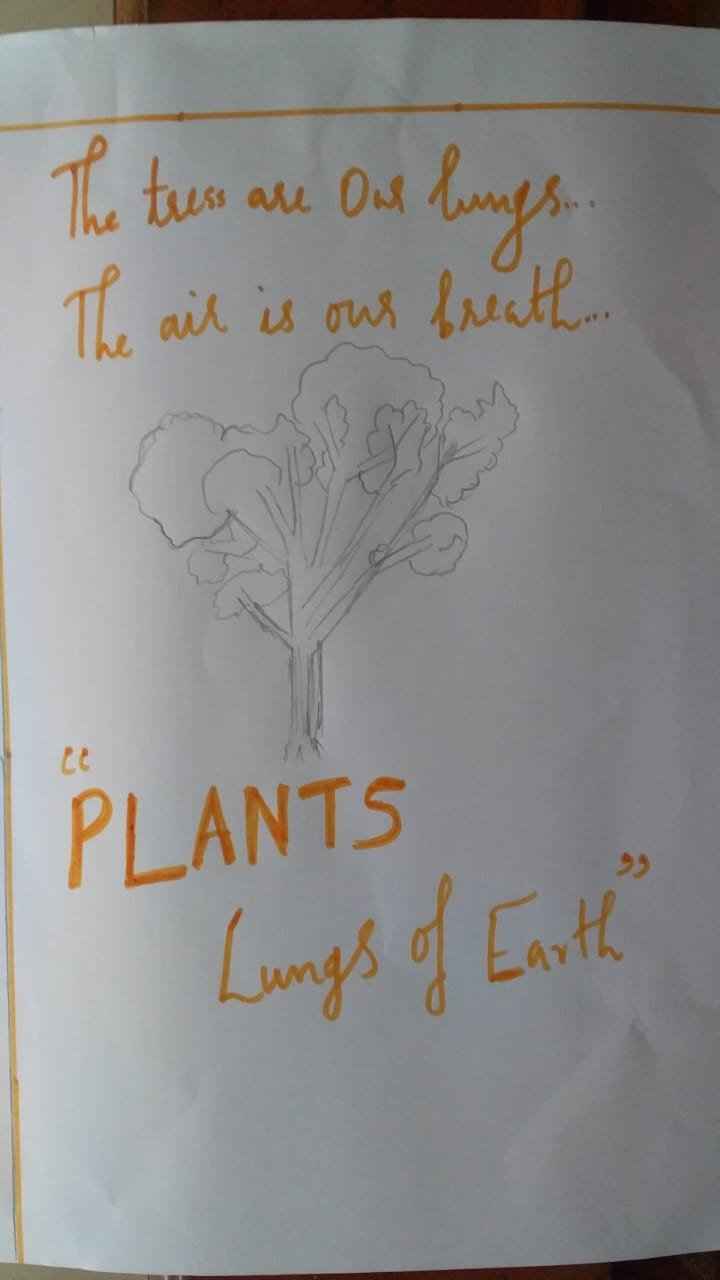 The tress are Our lungs...
The air is our breath...
"PLANTS
Lungs of Earth"